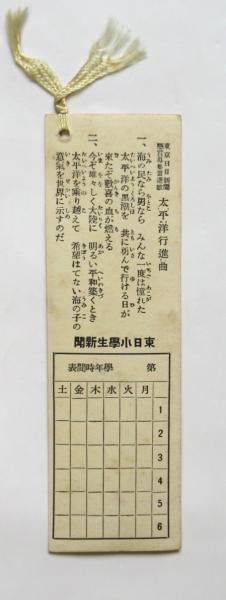 東京日日新聞
懸賞募集當選歌
太平洋行進曲
一、海の民なら男なら みんな一度は憧れた
太平洋の黒潮を 共に勇んで行ける日が
來たぞ歡喜の血が燃える
二、今ぞ雄々しく大陸に 明るい平和築くとき
太平洋を乘り越えて 希望はてない海の子の
意氣を世界に示すのだ
東日小學生新聞
第 學年時間表
月 火 水 木 金 土
1
2
3
4
5
6